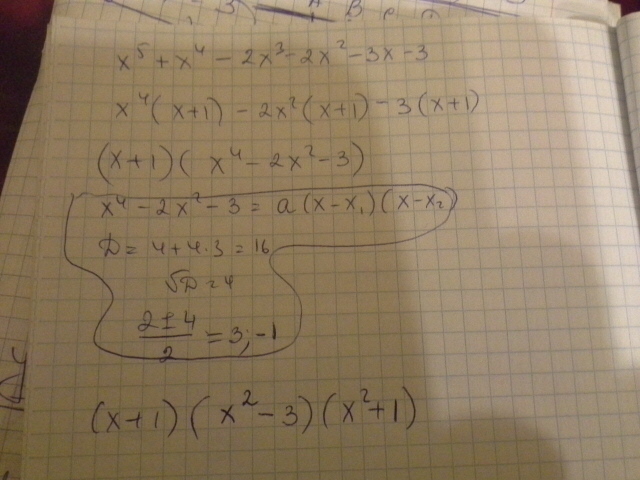 x⁵ + x⁴ − 2x³ − 2x² − 3x − 3
x⁴(x+1) − 2x²(x+1) − 3(x+1)
(x+1)(x⁴ − 2x² − 3)
x⁴ − 2x² − 3 = a(x−x₁)(x−x₂)
D = 4 + 4·3 = 16
√D = 4
(2 ± 4)/2 = 3; −1
(x+1)(x² − 3)(x² + 1)